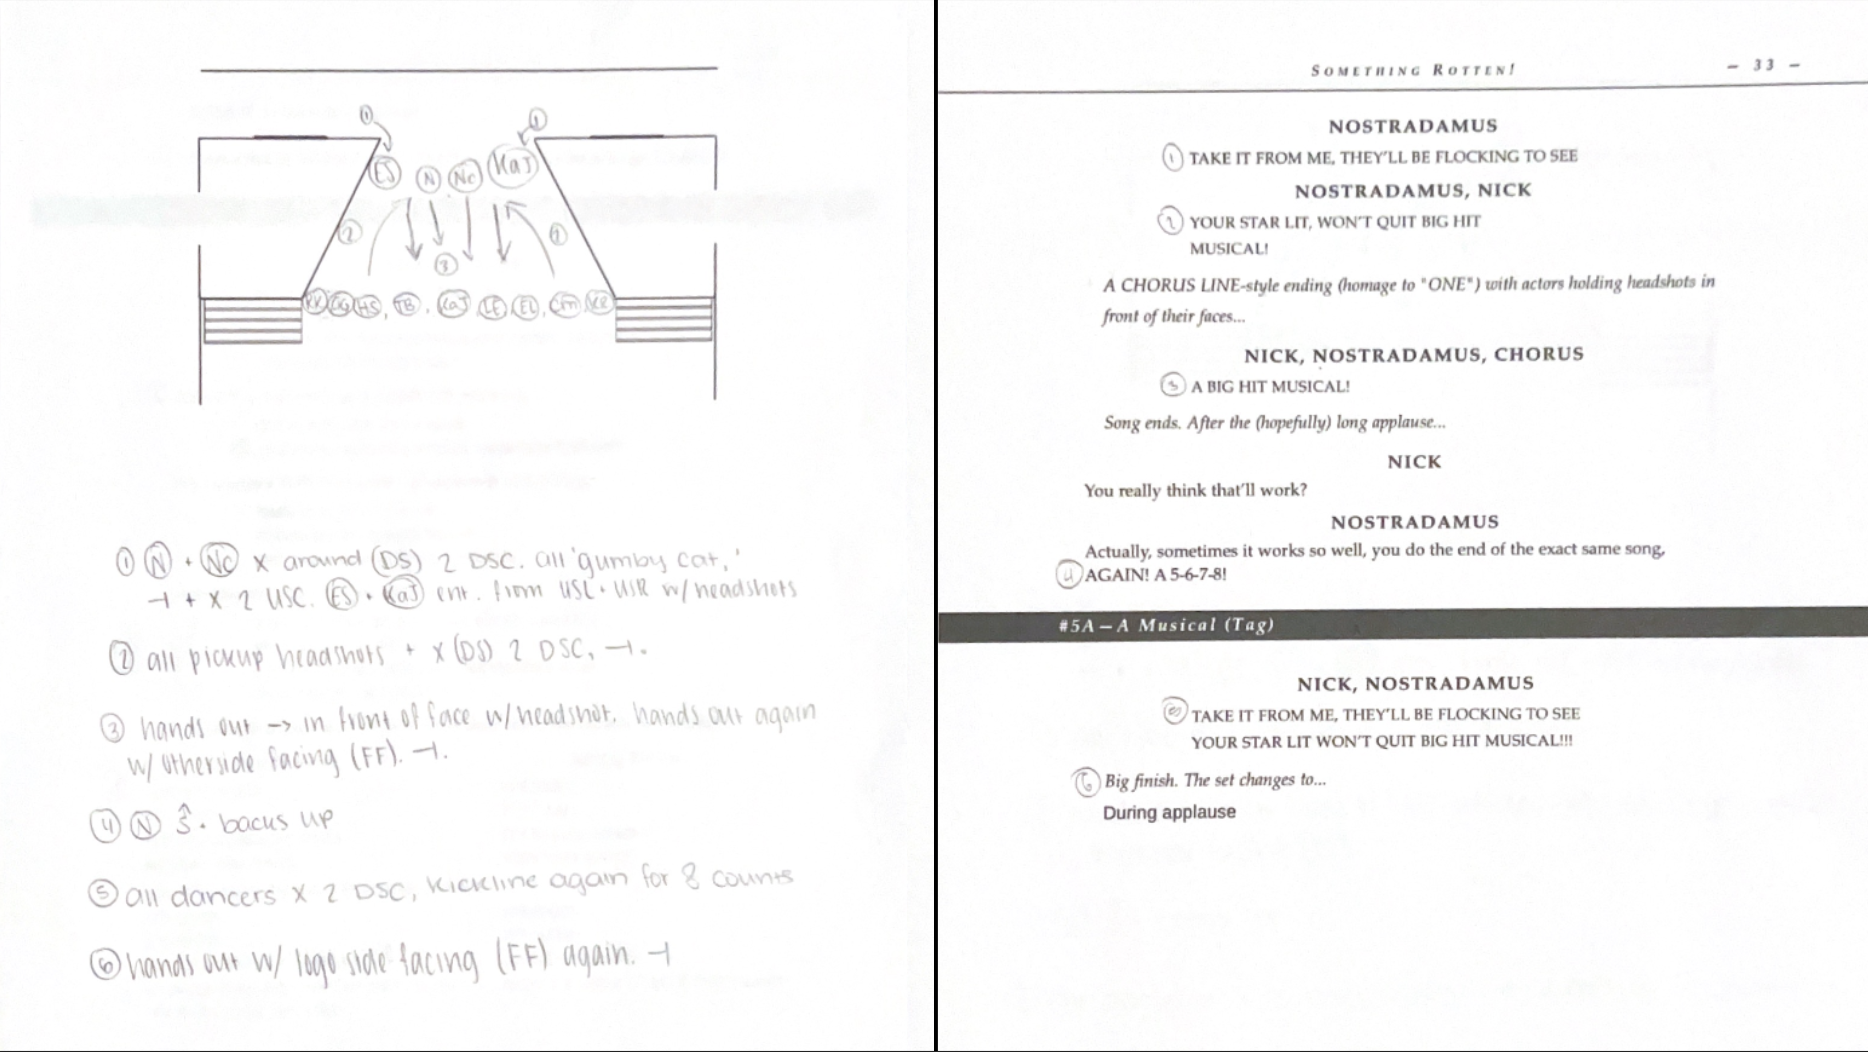 ①
①
ES N Nc KaJ
②
②
③
HS, TB, KaJ LE EL
① N + Nc X around (DS) 2 DSC. all 'gumby cat,'
⊣ + X 2 USC. ES + KaJ ent. from USL + USR w/ headshots
② all pickup headshots + X (DS) 2 DSC, ⊣.
③ hands out → in front of face w/ headshot. hands out again
w/ otherside facing (FF). ⊣.
④ N S. backs up
⑤ all dancers X 2 DSC, kickline again for 8 counts
⑥ hands out w/ logo side facing (FF) again. ⊣
SOMETHING ROTTEN!
– 33 –
NOSTRADAMUS
① TAKE IT FROM ME, THEY'LL BE FLOCKING TO SEE
NOSTRADAMUS, NICK
② YOUR STAR LIT, WON'T QUIT BIG HIT
MUSICAL!
A CHORUS LINE-style ending (homage to "ONE") with actors holding headshots in
front of their faces...
NICK, NOSTRADAMUS, CHORUS
③ A BIG HIT MUSICAL!
Song ends. After the (hopefully) long applause...
NICK
You really think that'll work?
NOSTRADAMUS
Actually, sometimes it works so well, you do the end of the exact same song,
④ AGAIN! A 5-6-7-8!
#5A – A Musical (Tag)
NICK, NOSTRADAMUS
⑤ TAKE IT FROM ME, THEY'LL BE FLOCKING TO SEE
YOUR STAR LIT WON'T QUIT BIG HIT MUSICAL!!!
⑥ Big finish. The set changes to...
During applause